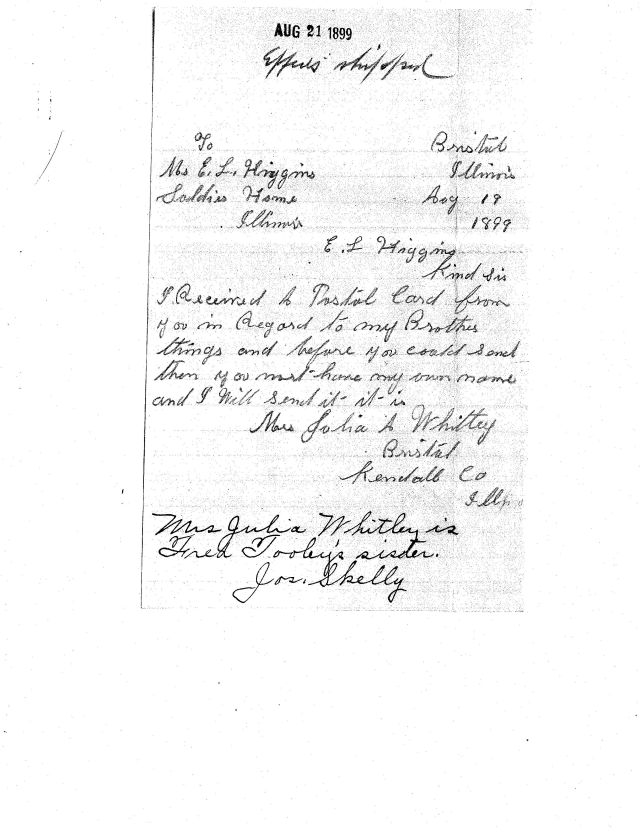 AUG 21 1899
Effects shipped
To
Bristol
Ms E. L. Higgins
Illinois
Soldies Home
Aug 19
Illinois
1899
E. L Higgins
Kind Sir
I Received A Postal Card from
you in Regard to my Brother
things and before you could Send
them you must have my own name
and I Will Send it it is
Mrs Julia A Whitley
Bristol
Kendall Co
Ills
Mrs Julia Whitley is
Fred Tooley's sister.
Jos. Skelly